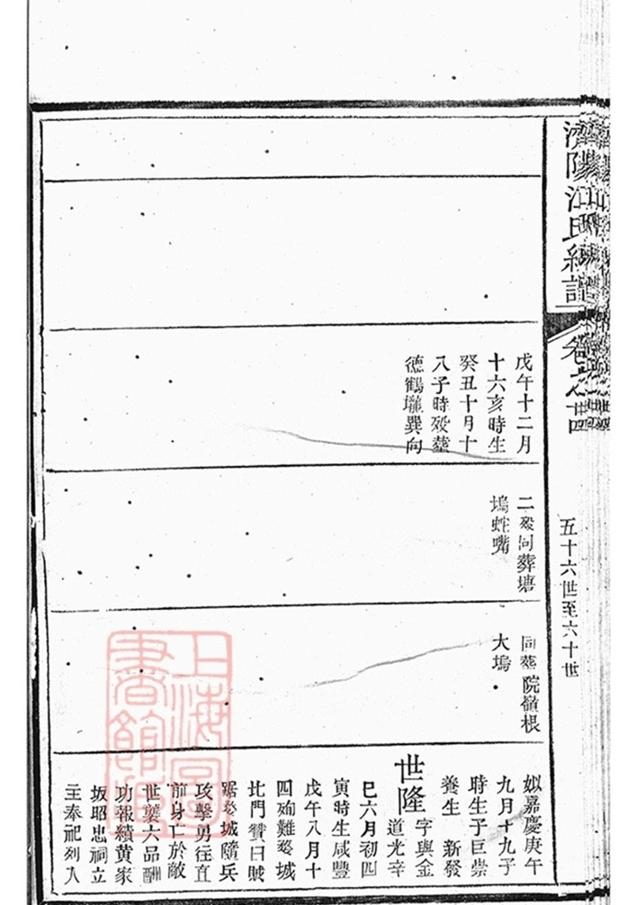 濟陽江氏統譜
卷之
五十六世至六十世
戊午十二月
十六亥時生
癸丑十月十
八子時歿葬
德鶴壠巽向
二衆同葬塘
塢蛀嘴
同葬院嶺根
大塢
娰嘉慶庚午
九月十九子
時生子巨棠
養生 新發
世隆 字與金
道光辛
巳六月初四
寅時生咸豐
戊午八月十
四殉難婺城
北門贊曰賊
踞婺城隨兵
攻擊勇往直
前身亡於敵
世襲六品酬
功報績黄家
坂昭忠祠立
主奉祀列入
上海圖
書館藏